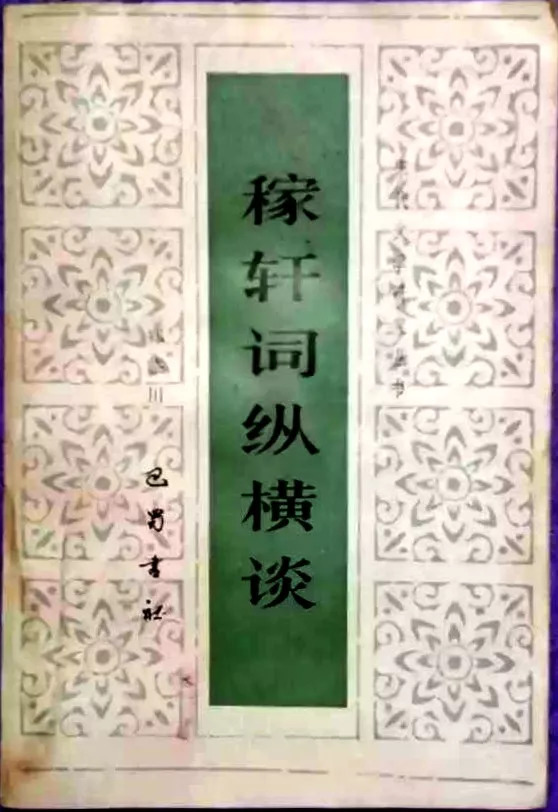 代文学丛书
稼轩词纵横谈
川
巴蜀书社